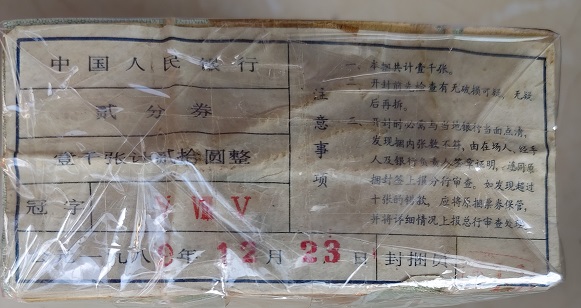 中国人民银行
贰分券
壹千张计贰拾圆整
冠字 Ⅴ Ⅷ Ⅴ
一九八0年12月23日 封捆员
注意事项
一、本捆共计壹千张。
开封时先检查有无破损可疑，无疑
后再拆。
二、开封时必需与当地银行当面点清，
发现捆内张数不符，由在场人、经手
人及银行负责人签章证明，连同原
捆封签上报分行审查，如发现超过
十张的错款，应将原捆票券保管，
并将详细情况上报总行审查处理。